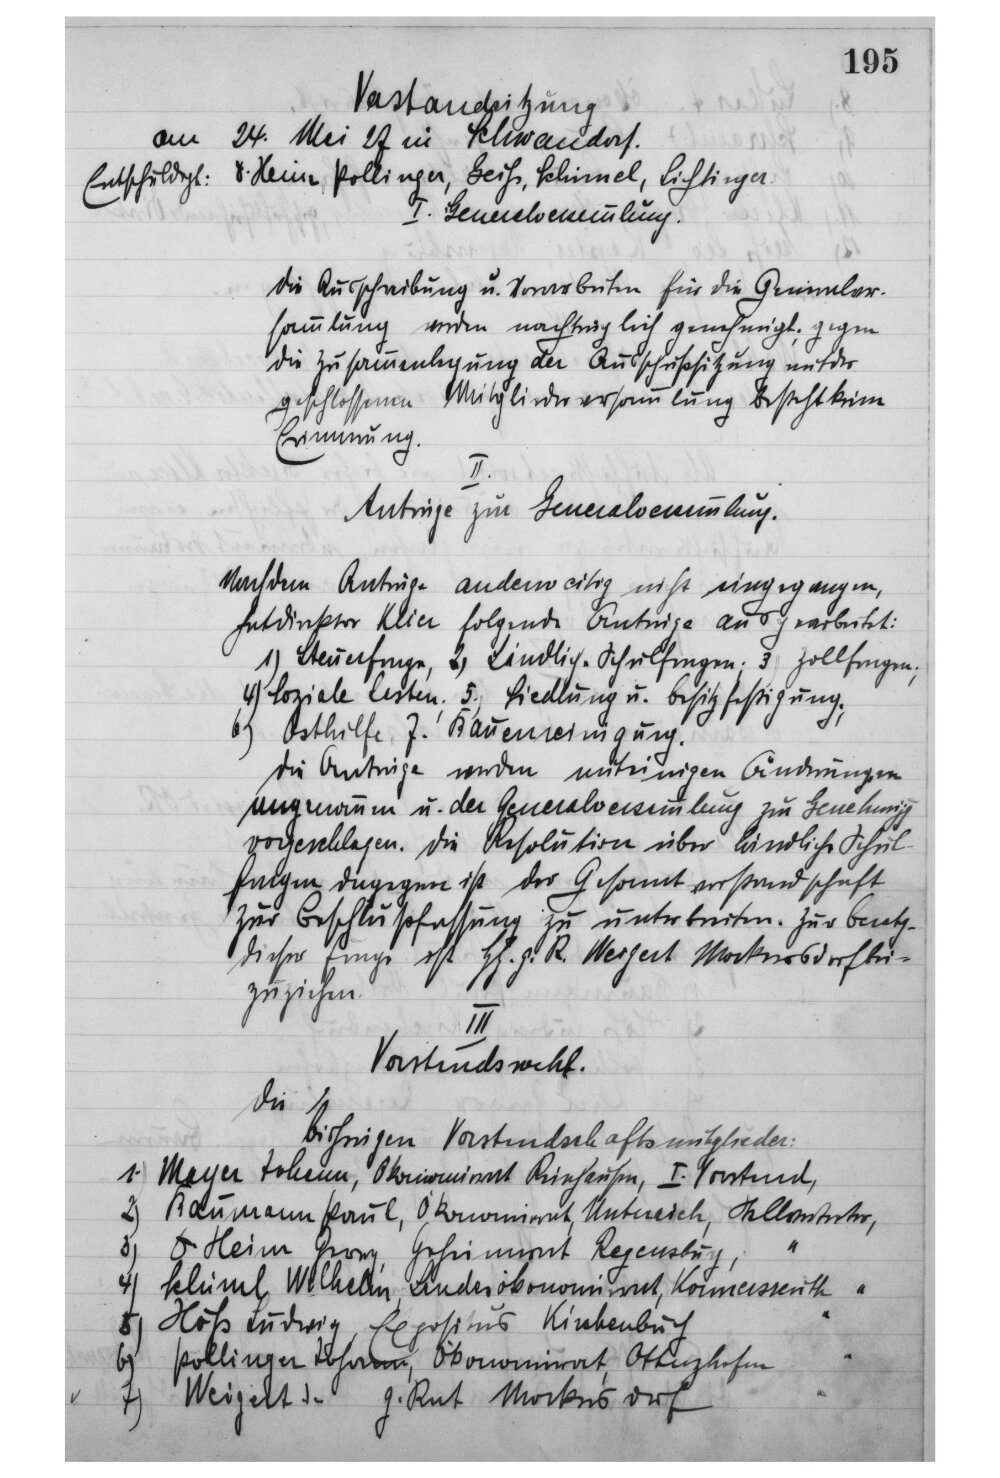 195
Vorstandsitzung
am 24. Mai 27 in Schwandorf.
Entschuldigt: Dr. Heim, Pollinger, Geiß, Schimel, Lichtinger.
I. Generalversam̄lung.
Die Ausschreibung u. Vorarbeiten für die Generalver-
sam̄lung werden nachträglich genehmigt; gegen
die Zusam̄enlegung der Ausschußsitzung mit der
geschlossenen Mitgliederversam̄lung besteht keine
Erinnerung.
II.
Anträge zur Generalversam̄lung.
Nachdem Anträge anderweitig nicht eingegangen,
hat Direktor Klier folgende Anträge ausgearbeitet:
1) Steuerfrage, 2) Ländliche Schulfragen; 3) Zollfragen;
4) Soziale Lasten; 5) Siedlung u. Besitzfestigung;
6) Osthilfe, 7.
Die Anträge werden mit einigen Änderungen
angenom̄en u. der Generalversam̄lung zur Genehmigg
vorgeschlagen. Die Resolution über ländliche Schul-
fragen dagegen ist der Gesamtvorstandschaft
zur Beschlußfassung zu unterbreiten. Zur Beratg.
dieser Frage ist H. g. R. Weigert Mockersdorf bei-
zuziehen.
III
Vorstandswahl.
Die
bisherigen Vorstandschaftsmitglieder:
1.) Mayer Johann, Ökonomierat Rainhausen, I. Vorstand,
2) Baumann Paul, Ökonomierat, Untereich, Stellvertreter,
3) Dr Heim Georg, Geheimrat Regensburg, "
4) Schiml Wilhelm, Landesökonomierat, Konnersreuth "
5) Höß Ludwig, Expositus Kirchenbuch "
6) Pollinger Johann, Ökonomierat, Otterzhofen "
7) Weigert J. g. Rat Mockersdorf "